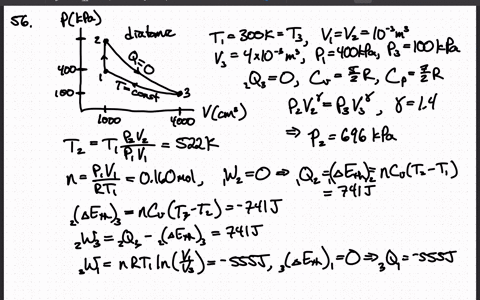 56.
P(kPa)
diatomic
2
Q=0
400
1
T=const
100
3
V(cm³)
1000
4000
T₁=300K=T₃, V₁=V₂=10⁻³m³
V₃=4×10⁻³m³, P₁=400kPa, P₃=100kPa
₂Q₃=0, Cᵥ=5/2R, Cₚ=7/2R
P₂V₂^γ=P₃V₃^γ, γ=1.4
⇒ P₂=696 kPa
T₂=T₁ P₂V₂/P₁V₁ = 522K
n=P₁V₁/RT₁=0.160mol, ₁W₂=0 ⇒ ₁Q₂=₁(ΔEₜₕ)₂=nCᵥ(T₂-T₁)
=741J
₂(ΔEₜₕ)₃=nCᵥ(T₃-T₂)=-741J
₂W₃=₂Q₃-₂(ΔEₜₕ)₃=741J
₃W₁=nRT₁ln(V₁/V₃)=-555J, ₃(ΔEₜₕ)₁=0⇒₃Q₁=-555J